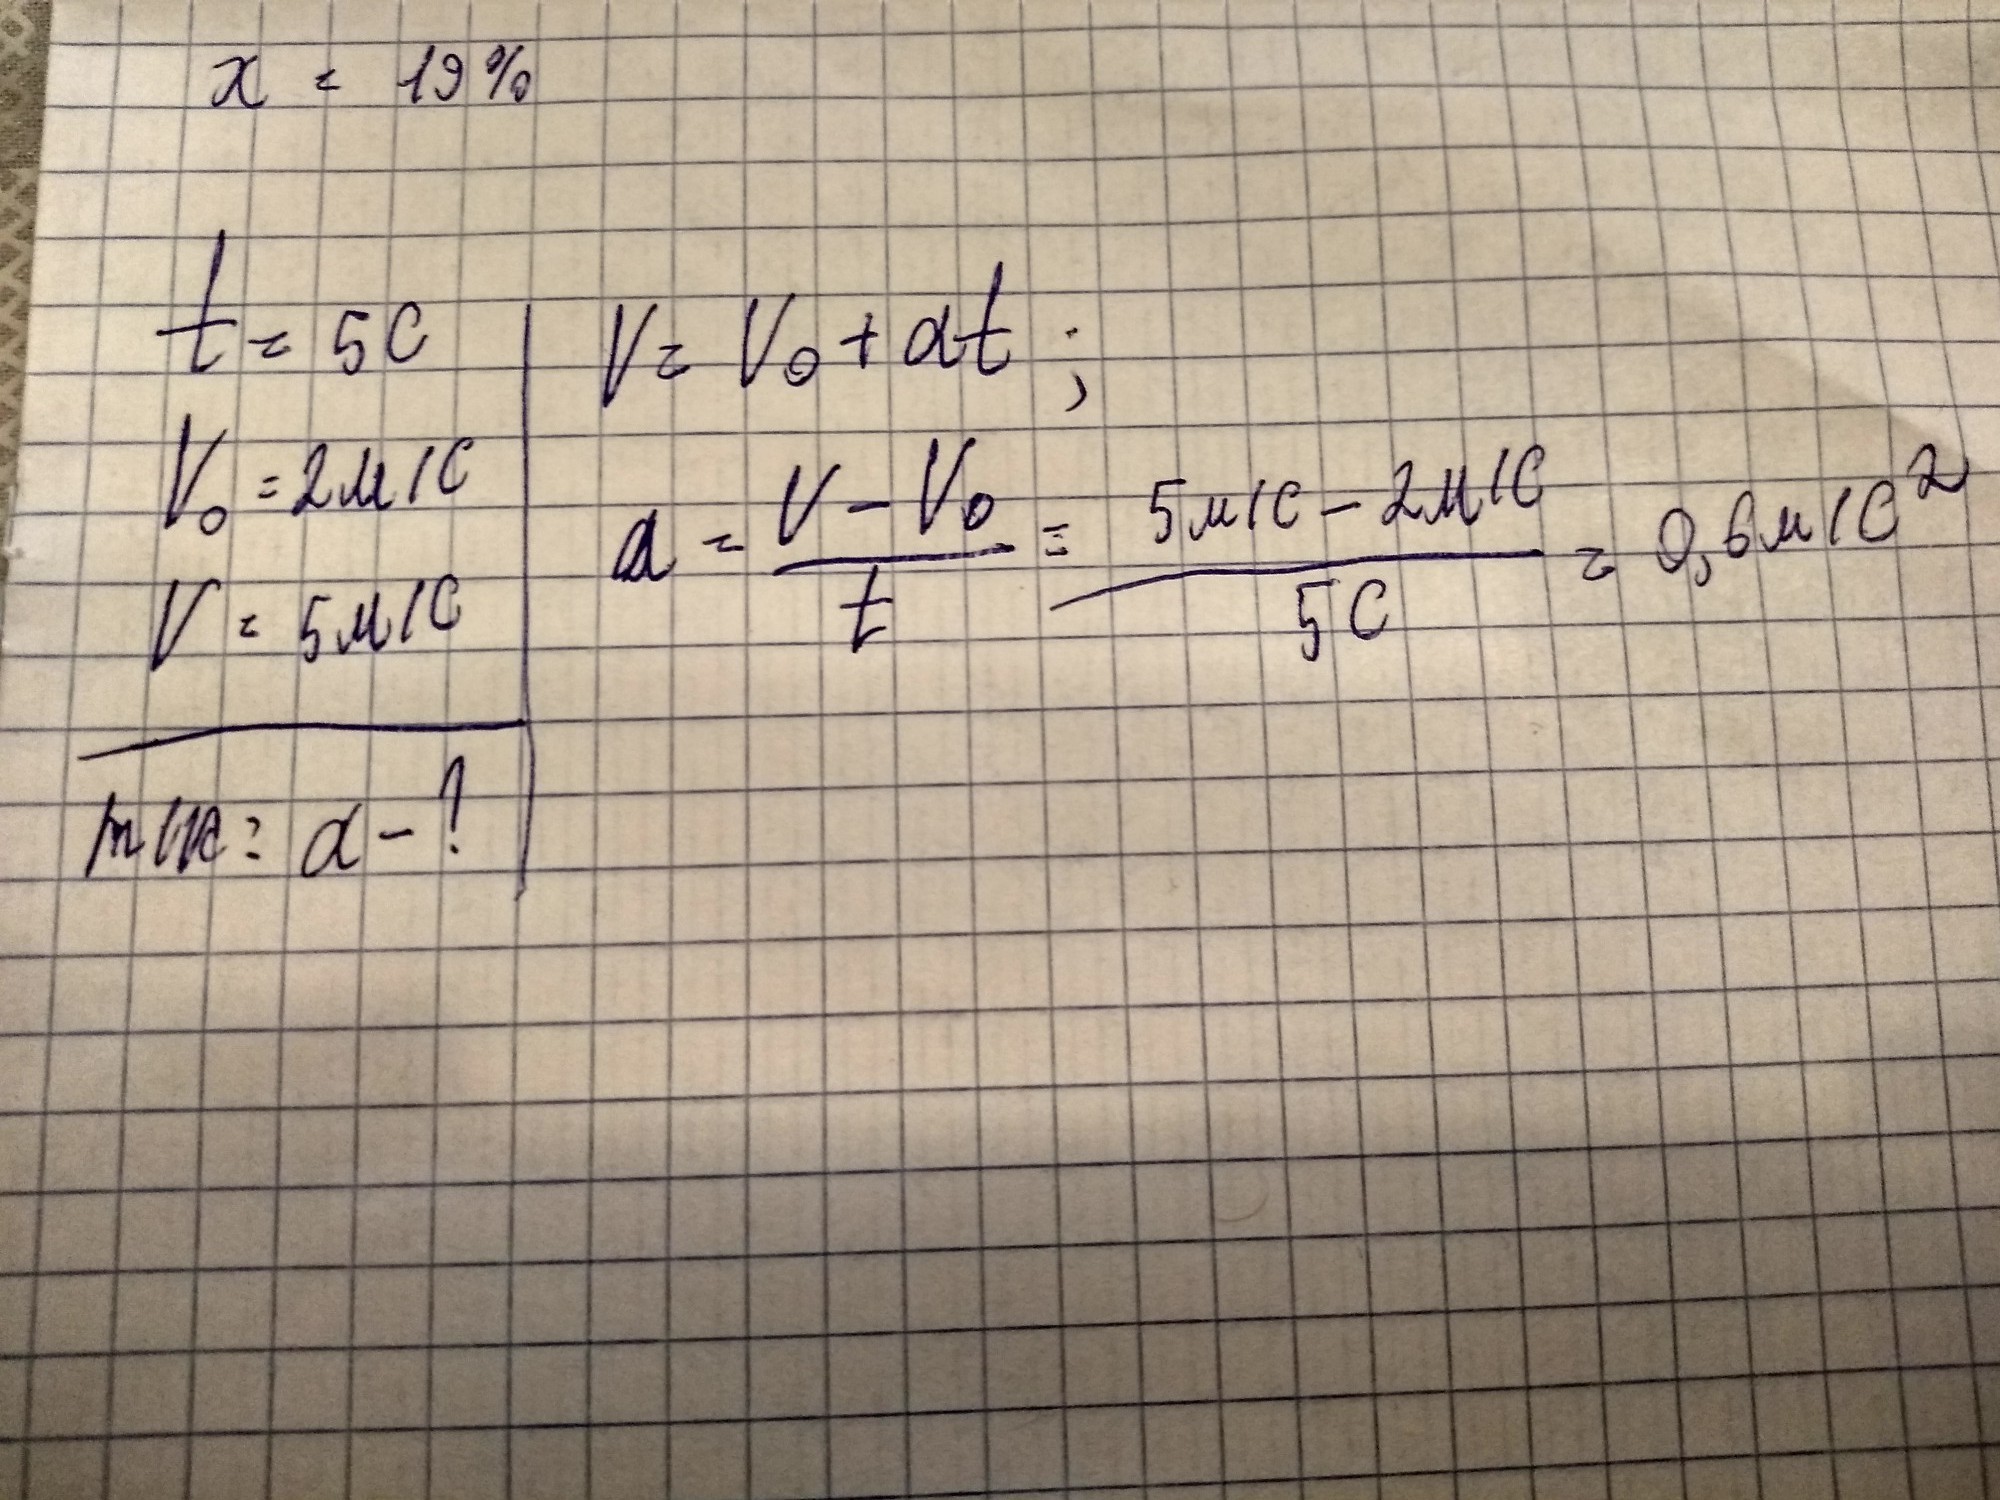 x = 19%
t = 5с
V₀ = 2м/с
V = 5м/с
a - ?
V = V₀ + at ;
a = (V - V₀)/t = (5м/с - 2м/с)/5с = 0,6м/с²